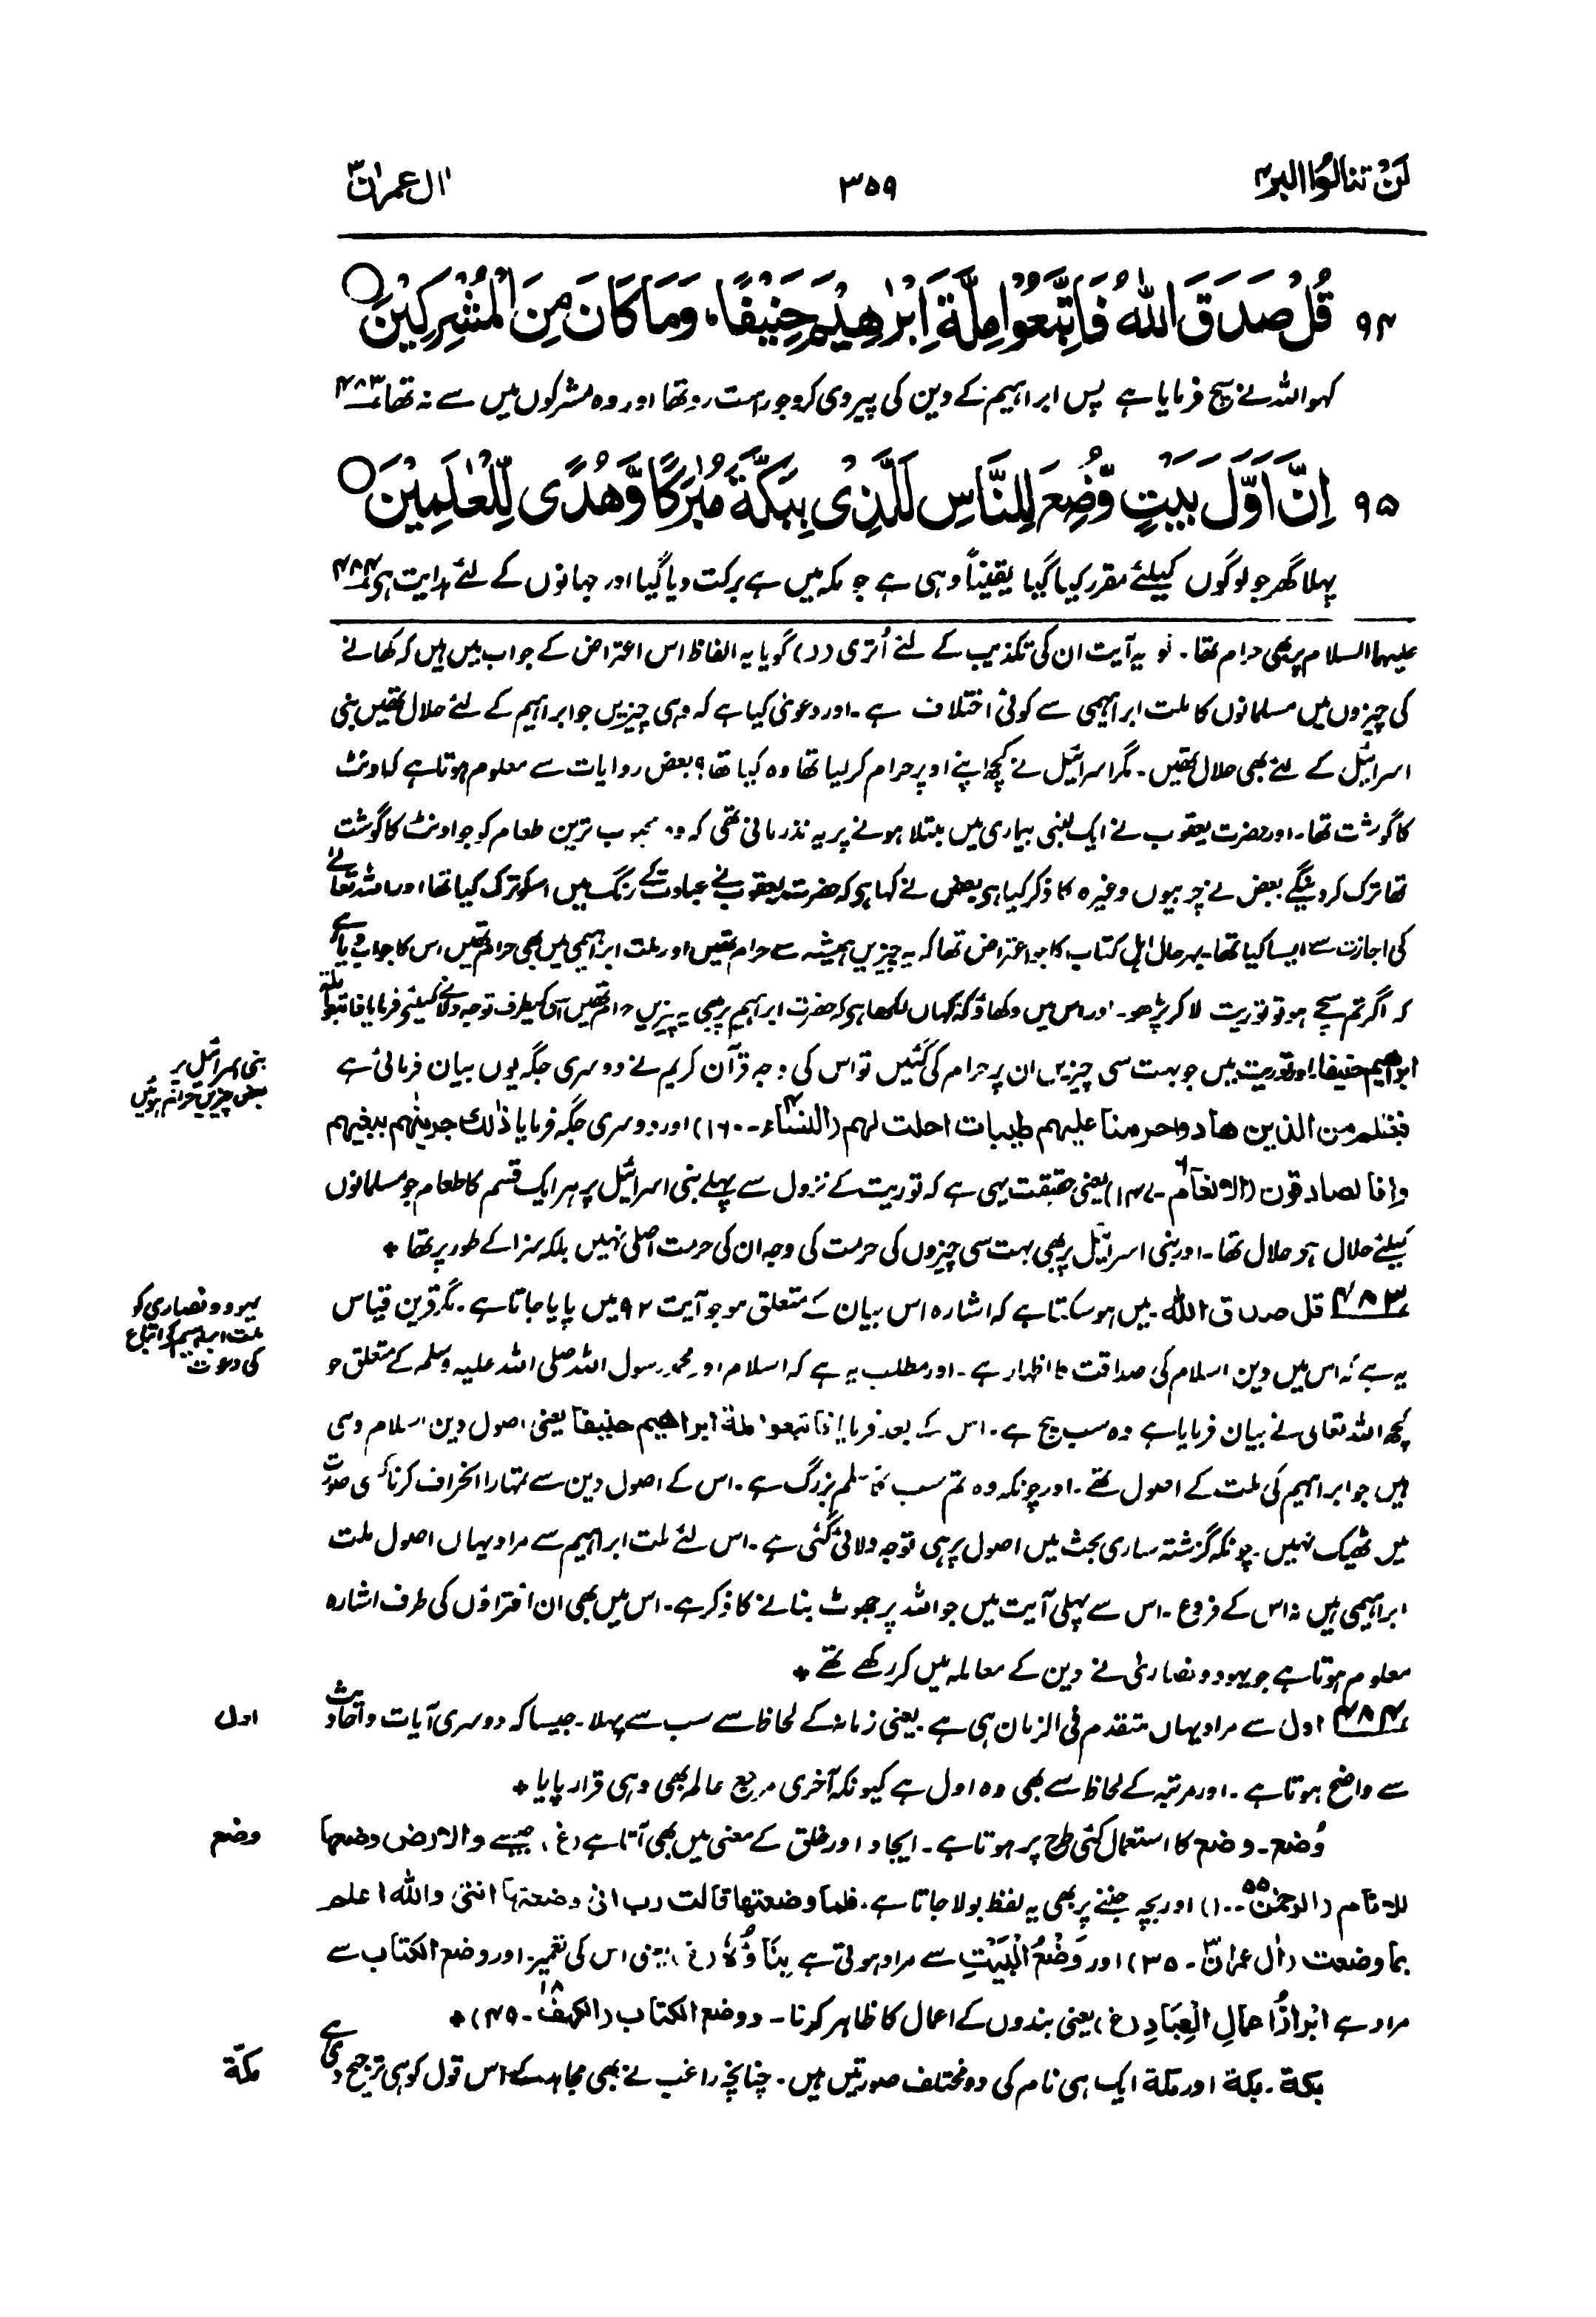 لن تنالوا البر ۴
۳۵۹
اٰل عمرٰن ۳
۹۴ قُلْ صَدَقَ اللّٰهُ فَاتَّبِعُوْا مِلَّةَ اِبْرٰهِيْمَ حَنِيْفًا، وَمَا كَانَ مِنَ الْمُشْرِكِيْنَ ○
کہو اللہ نے سچ فرمایا ہے پس ابراہیم کے دین کی پیروی کرو جو راست رو تھا اور وہ مشرکوں میں سے نہ تھا ۴۸۳
۹۵ اِنَّ اَوَّلَ بَيْتٍ وُّضِعَ لِلنَّاسِ لَلَّذِىْ بِبَكَّةَ مُبٰرَكًا وَّهُدًى لِّلْعٰلَمِيْنَ ○
پہلا گھر جو لوگوں کیلئے مقرر کیا گیا یقیناً وہی ہے جو مکہ میں ہے برکت دیا گیا اور جہانوں کے لئے ہدایت ہی ۴۸۴
علیہما السلام پر بھی حرام تھا۔ تو یہ آیت ان کی تکذیب کے لئے اُتری (د) گویا یہ الفاظ اس اعتراض کے جواب میں ہیں کہ کھانے
کی چیزوں میں مسلمانوں کا ملت ابراہیمی سے کوئی اختلاف ہے۔ اور دعویٰ کیا ہے کہ وہی چیزیں جو ابراہیم کے لئے حلال تھیں بنی
اسرائیل کے لئے بھی حلال تھیں۔ مگر اسرائیل نے کچھ اپنے اوپر حرام کر لیا تھا وہ کیا تھا؟ بعض روایات سے معلوم ہوتا ہے کہ اونٹ
کا گوشت تھا۔ اور حضرت یعقوب نے ایک لمبی بیماری میں مبتلا ہونے پر یہ نذر مانی تھی کہ وہ محبوب ترین طعام کو جو اونٹ کا گوشت
تھا ترک کر دینگے بعض نے چربیوں وغیرہ کا ذکر کیا ہی بعض نے کہا ہی کہ حضرت یعقوب نے عبادت کے رنگ میں اسکو ترک کیا تھا اور اللہ تعالےٰ
کی اجازت سے ایسا کیا تھا۔ بہر حال اہل کتاب کا جو اعتراض تھا کہ یہ چیزیں ہمیشہ سے حرام تھیں اور ملت ابراہیمی میں بھی حرام تھیں اس کا جواب دیا ہے
کہ اگر تم سچے ہو تو توریت لا کر پڑھو۔ اور اس میں دکھاؤ کہ کہاں لکھا ہی کہ حضرت ابراہیم پر بھی یہ چیزیں حرام تھیں اسی کیطرف توجہ دلانے کیلئے فرمایا فاتبعوا ملة
ابراهيم حنيفا۔ اور توریت میں جو بہت سی چیزیں ان پر حرام کی گئیں تو اس کی وجہ قرآن کریم نے دوسری جگہ یوں بیان فرمائی ہے
فبظلم من الذين هادوا حرمنا عليهم طيبات احلت لهم (النساء ۴۔ ۱۶۰) اور دوسری جگہ فرمایا ذٰلك جزينٰهم ببغيهم
وانا لصادقون (الانعام ۶۔ ۱۴۷) یعنی حقیقت یہی ہے کہ توریت کے نزول سے پہلے بنی اسرائیل پر ہر ایک قسم کا طعام جو مسلمانوں
کیلئے حلال ہو حلال تھا۔ اور بنی اسرائیل پر بھی بہت سی چیزوں کی حرمت کی وجہ ان کی حرمت اصلی نہیں بلکہ سزا کے طور پر تھا ✦
بنی اسرائیل پر
بعض چیزیں حرام ہوئیں
۴۸۳ قل صدق الله۔ میں ہو سکتا ہے کہ اشارہ اس بیان کے متعلق ہو جو آیت ۹۲ میں پایا جاتا ہے۔ مگر قرین قیاس
یہ ہے کہ اس میں دین اسلام کی صداقت کا اظہار ہے۔ اور مطلب یہ ہے کہ اسلام اور محمد رسول اللہ صلی اللہ علیہ وسلم کے متعلق جو
کچھ اللہ تعالی نے بیان فرمایا ہے وہ سب سچ ہے۔ اس کے بعد فرمایا فاتبعوا ملة ابراهيم حنيفا یعنی اصول دین اسلام وہی
ہیں جو ابراہیم کی ملت کے اصول تھے۔ اور چونکہ وہ تم سب کا مسلم بزرگ ہے۔ اس کے اصول دین سے تمہارا انحراف کرنا کسی صورت
میں ٹھیک نہیں۔ چونکہ گزشتہ ساری بحث میں اصول پر ہی توجہ دلائی گئی ہے۔ اس لئے ملت ابراہیم سے مراد یہاں اصول ملت
ابراہیمی ہیں نہ اس کے فروع۔ اس سے پہلی آیت میں جو اللہ پر جھوٹ بنانے کا ذکر ہے۔ اس میں بھی ان افتراؤں کی طرف اشارہ
معلوم ہوتا ہے جو یہود و نصاریٰ نے دین کے معاملہ میں کر رکھے تھے ✦
یہود و نصاری کو
ملت ابراہیم کے اتباع
کی دعوت
۴۸۴ اول سے مراد یہاں متقدم فی الزمان ہی ہے۔ یعنی زمانہ کے لحاظ سے سب سے پہلا۔ جیسا کہ دوسری آیات و احادیث
سے واضح ہوتا ہے۔ اور مرتبہ کے لحاظ سے بھی وہ اول ہے کیونکہ آخری مرجع عالم بھی وہی قرار پایا ✦
اول
وُضع۔ وضع کا استعمال کئی طرح پر ہوتا ہے۔ ایجاد اور خلق کے معنی میں بھی آتا ہے (غ) جیسے والارض وضعها
للانام (الرحمٰن ۵۵۔ ۱۰) اور بچہ جننے پر بھی یہ لفظ بولا جاتا ہے۔ فلما وضعتها قالت رب انی وضعتها انثیٰ والله اعلم
بما وضعت (اٰل عمران ۳۔ ۳۵) اور وَضْعُ الْبَيْتِ سے مراد ہوتی ہے بِنَاؤُهٗ (غ) یعنی اس کی تعمیر اور وضع الکتاب سے
مراد ہے اِبْرَازُ اَعمَالِ الْعِبَادِ (غ) یعنی بندوں کے اعمال کا ظاہر کرنا۔ ووضع الکتاب (الکهف ۱۸۔ ۴۹) ✦
وضع
بكة۔ بكة اور مكة ایک ہی نام کی دو مختلف صورتیں ہیں۔ چنانچہ راغب نے بھی مجاہد کے اس قول کو ہی ترجیح دی ہے
مکّة